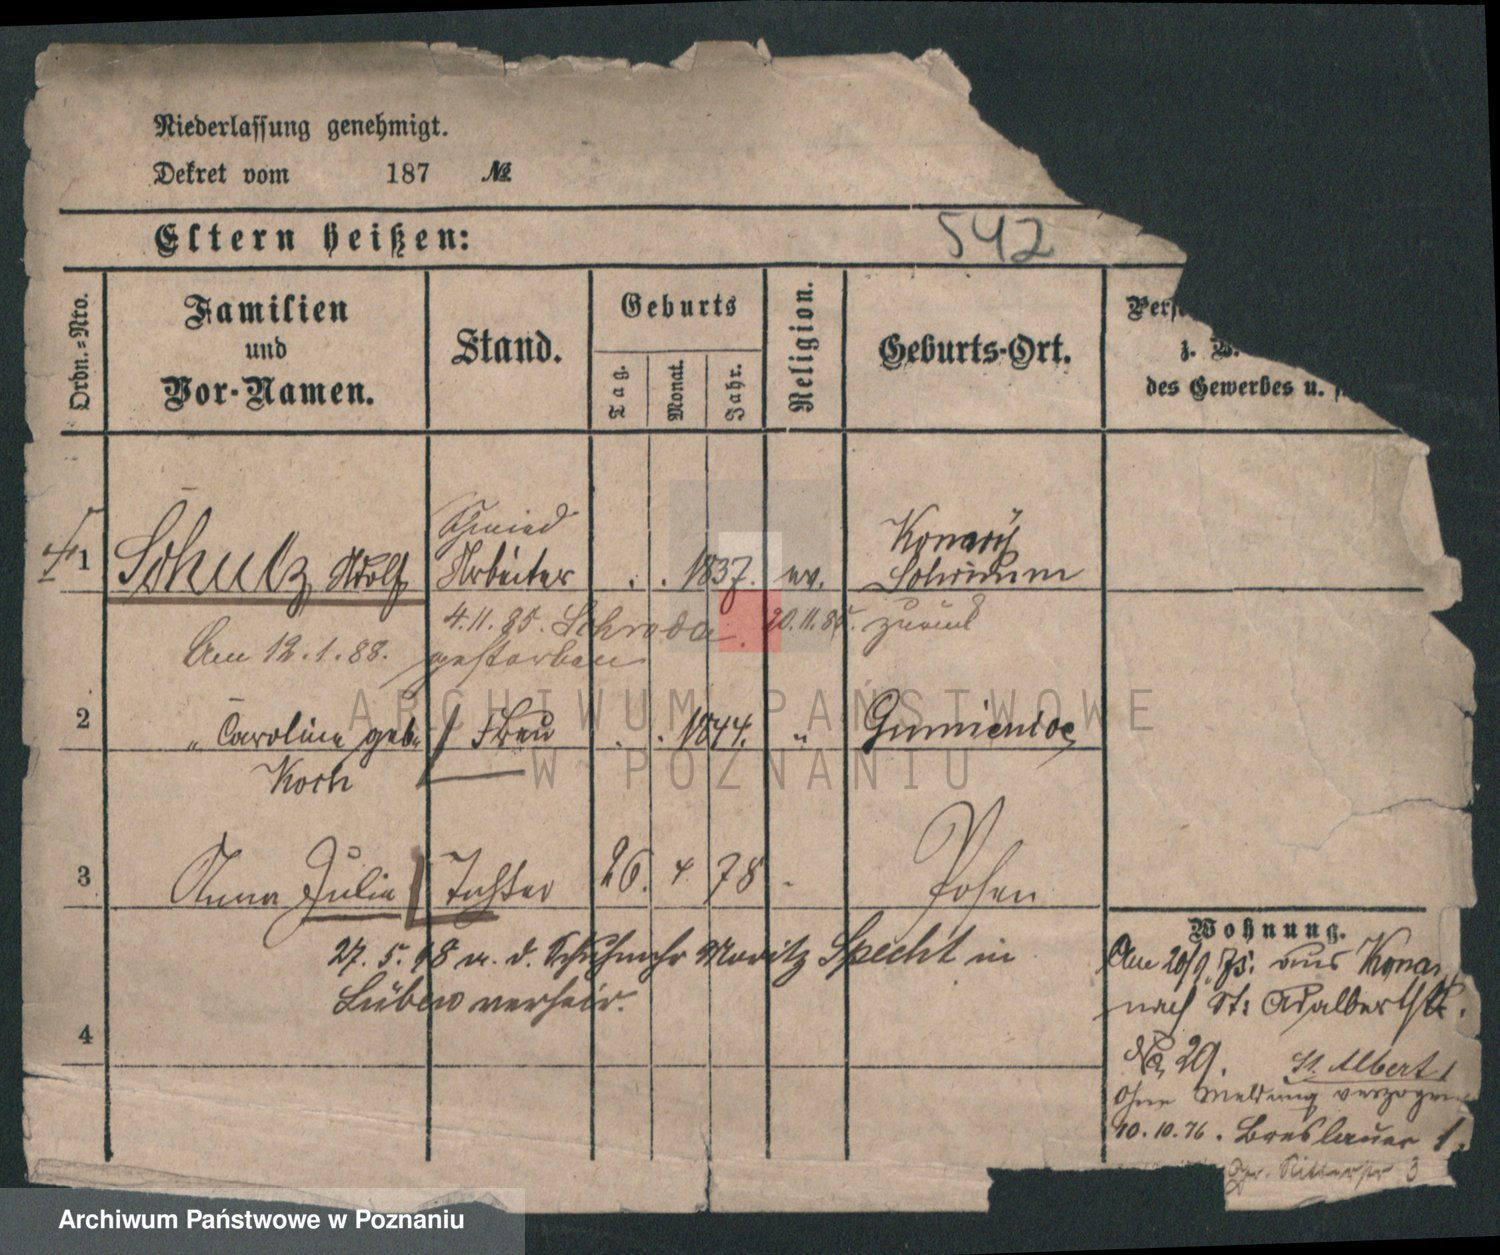 Niederlassung genehmigt.
Dekret vom 187 №
Eltern heißen:
542
Ordn.-Nro.
Familien
und
Vor-Namen.
Stand.
Geburts
Tag.
Monat.
Jahr.
Religion.
Geburts-Ort.
Pers
z. B.
des Gewerbes u.
1 Schulz Adolf
Schmied
Arbeiter . . 1837. ev.
Schrimm
4.11.85. Schroda. 20.11.85. zurück
Am 12.1.88. gestorben
2 „ Caroline geb. Frau . . 1844. „
Koch
3 Anna Julie Tochter 26. 4. 78 Posen
27. 5. 98 m. d. Schuhmchr Moritz Specht in
Lüben verheir.
4
Wohnung.
Am 20/9. 75. aus Kona
nach St: Adalbertstr.
No 29. St. Albert 1
Ohne Meldung verzogen
10.10.76. Breslauer 1.
Gr. Ritterstr 3
ARCHIWUM PAŃSTWOWE
W POZNANIU
Archiwum Państwowe w Poznaniu